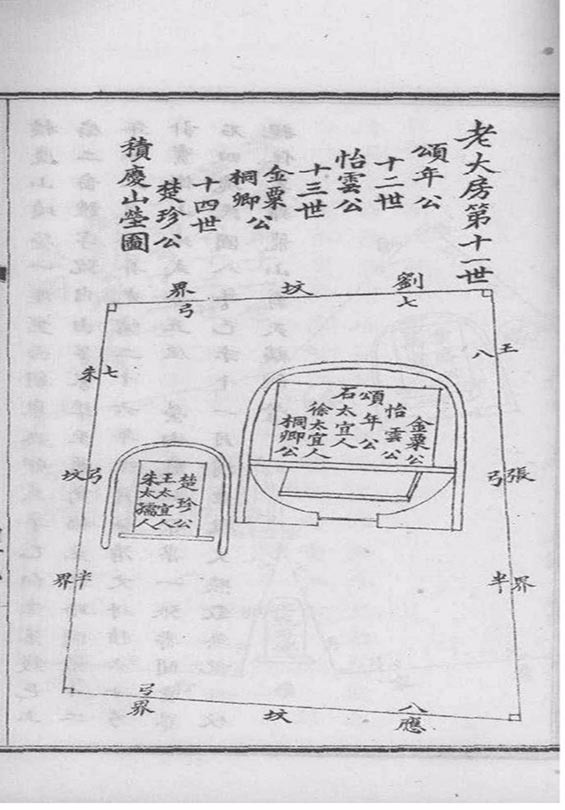 老大房第十一世
頌年公
十二世
怡雲公
十三世
金粟公
桐卿公
十四世
楚珍公
積慶山塋圖
劉坟界
七弓
王張界
八弓半
金粟公
怡雲公
頌年公
石太宜人
徐太宜人
桐卿公
楚珍公
王太宜人
朱太孺人
七弓半
朱坟界
八弓
應坟界